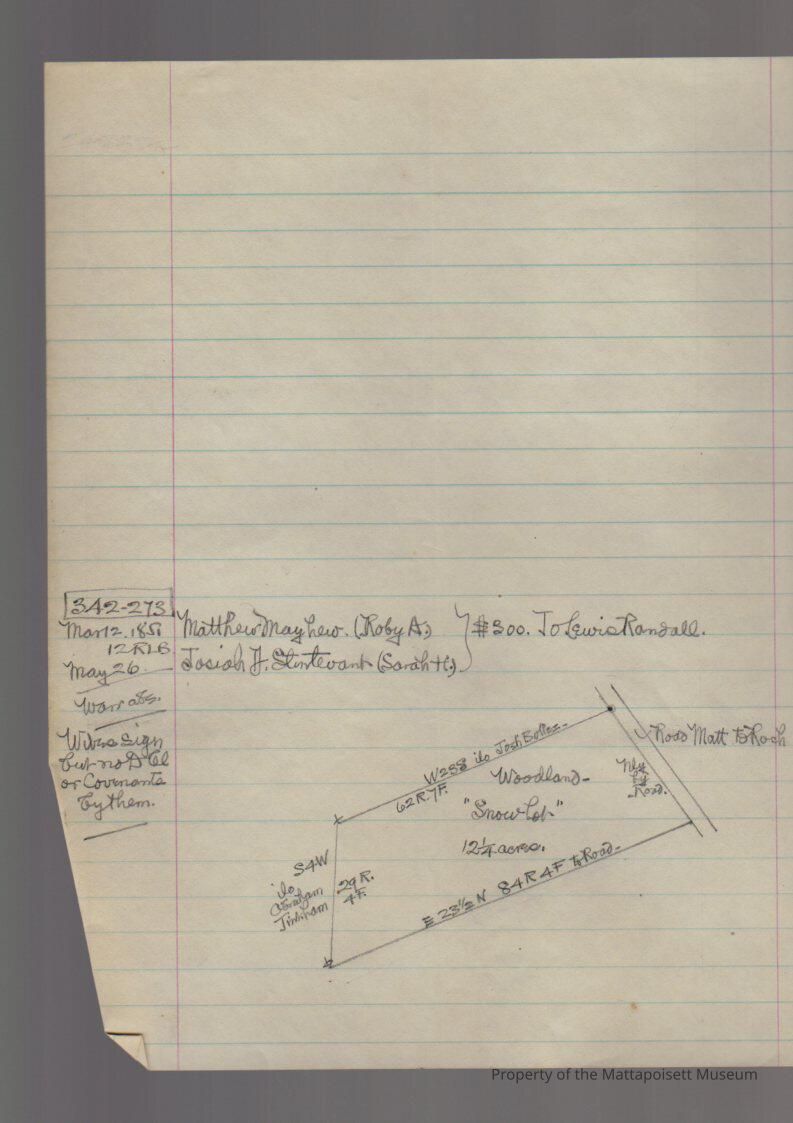 342-273
Mar 12. 1851
Matthew Mayhew. (Roby A.)
$300. To Lewis Randall.
May 26.
Josiah J. Sturtevant (Sarah H.)
Warr abs.
Wives sign
but no D
or Covenants
by them.
Road Matt to Roch
W 23 S ilo Josh Bolles-
62 R. 7 F.
Woodland-
"Snow Lot"
12 1/4 acres.
Nly
by
Road.
S4W
ilo
Abraham
Tinkham
29 R.
4 F.
E 23 1/2 N 84 R 4 F to Road-
Property of the Mattapoisett Museum